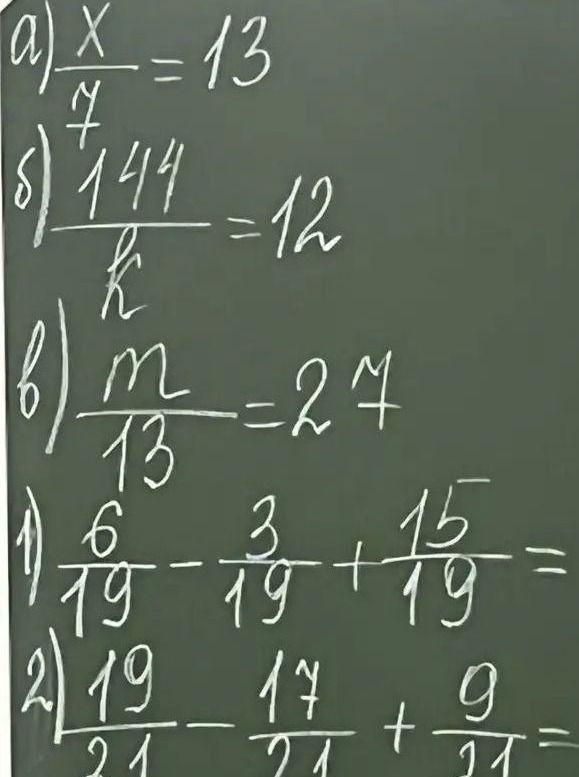 а) x/7 = 13
б) 144/k = 12
в) m/13 = 27
1) 6/19 - 3/19 + 15/19 =
2) 19/21 - 17/21 + 9/21 =